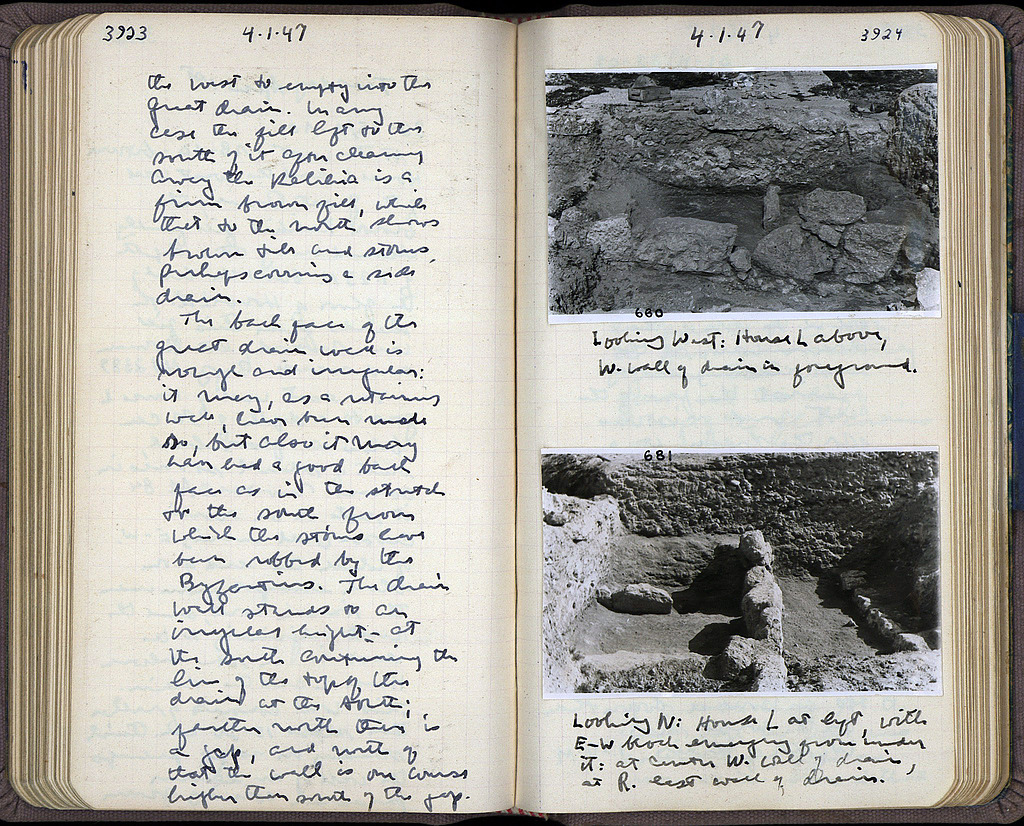 3923
4-1-47
the west to empty into the
great drain. In any
case the fill left to the
south of it after cleaning
away the Kalibia is a
firm brown fill, while
that to the north shows
brown fill and stones,
perhaps covering a side
drain.
The back face of the
great drain wall is
rough and irregular:
it may, as a retaining
wall, have been made
so, but also it may
have had a good back
face as in the stretch
to the south from
which the stones have
been robbed by the
Byzantines. The drain
wall stands to an
irregular height - at
the south continuing the
line of the top of the
drain at the South;
farther north there is
a gap, and north of
that the wall is one course
higher than south of the gap.
4-1-47
3924
680
Looking West: House L above,
W. wall of drain in foreground.
681
Looking N: House L at left, with
E-W block emerging from under
it: at center W. wall of drain,
at R. east wall of drain.